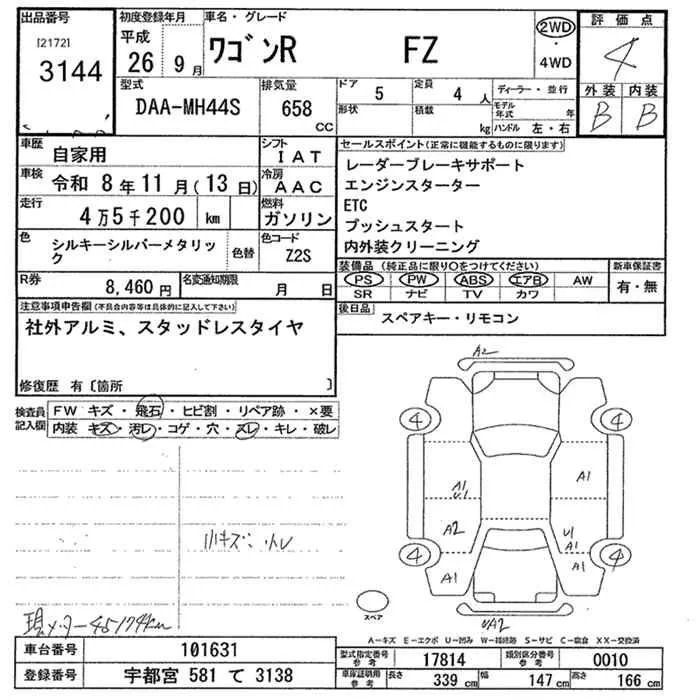 出品番号
[2172]
3144
初度登録年月
平成
26年 9月
車名・グレード
ワゴンR FZ
2WD
・
4WD
評価点
4
外装 内装
B B
型式
DAA-MH44S
排気量
658
CC
ドア
5
定員
4人
形状
積載
kg
ディーラー・並行
モデル年式 年
ハンドル 左・右
車歴
自家用
シフト
IAT
車検
令和 8年11月(13日)
冷房
AAC
走行
4万5千200 km
燃料
ガソリン
色
シルキーシルバーメタリック
色替
色コード
Z2S
R券
8,460円
名変通知期限
月 日
セールスポイント(正常に機能するものに限ります)
レーダーブレーキサポート
エンジンスターター
ETC
プッシュスタート
内外装クリーニング
装備品(純正品に限り○をつけてください)
PS PW ABS エアB AW
SR ナビ TV カワ
新車保証書
有・無
後日品
スペアキー・リモコン
注意事項申告欄(不具合内容等は具体的に記入して下さい)
社外アルミ、スタッドレスタイヤ
修復歴 有〔箇所 〕
検査員記入欄
FW キズ・飛石・ヒビ割・リペア跡・×要
内装 キズ・汚レ・コゲ・穴・スレ・キレ・破レ
小キズ・小レ
現メーター45174km
A2
4 4
A1
A1
U1
A2
U1
A1
4 4
A1 A1
UA2
スペア
A-キズ E-エクボ U-凹み W-補修跡 S-サビ C-腐食 XX-交換済
車台番号
101631
登録番号
宇都宮 581 て 3138
型式指定番号
参考
17814
類別区分番号
参考
0010
車庫証明用
参考
長さ 339 cm
幅 147 cm
高さ 166 cm